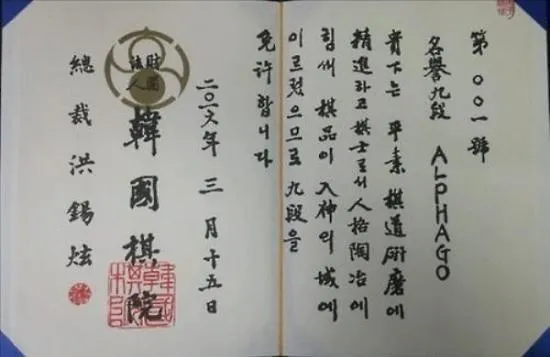 第 〇〇一號
名譽九段 ALPHAGO
貴下는 平素 棋道硏磨에
精進하고 棋士로서 人格陶冶에
힘써 棋品이 入神의 域에
이르렀으므로 九段을
免許합니다
二〇一六年 三月 十五日
財團法人 韓國棋院
總裁 洪錫炫